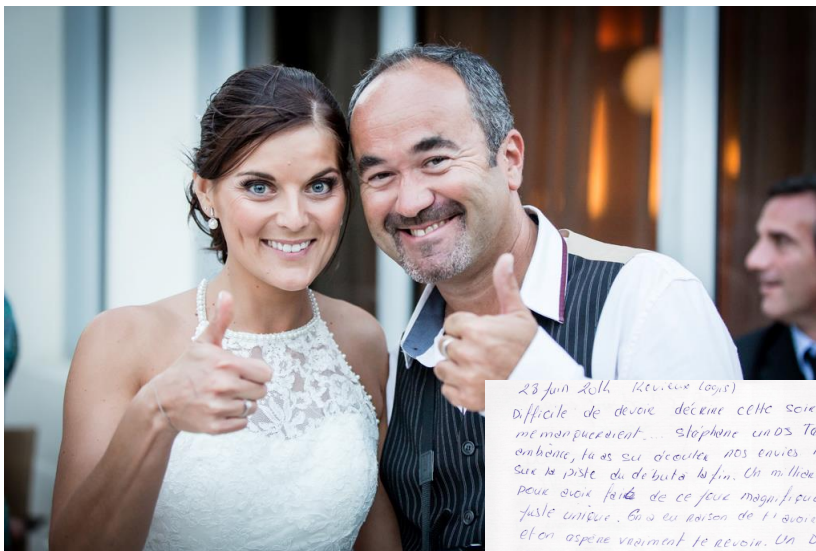 23 juin 2014
Difficile de devoir décrire cette soir
me manqueraient... Stéphane un DJ
ambiance, tu as su écouter nos envies
sur la piste du début à la fin. Un milliar
pour avoir fait de ce jour magnifique
juste unique. On a eu raison de t'avoir
et on espère vraiment te revoir. Un D